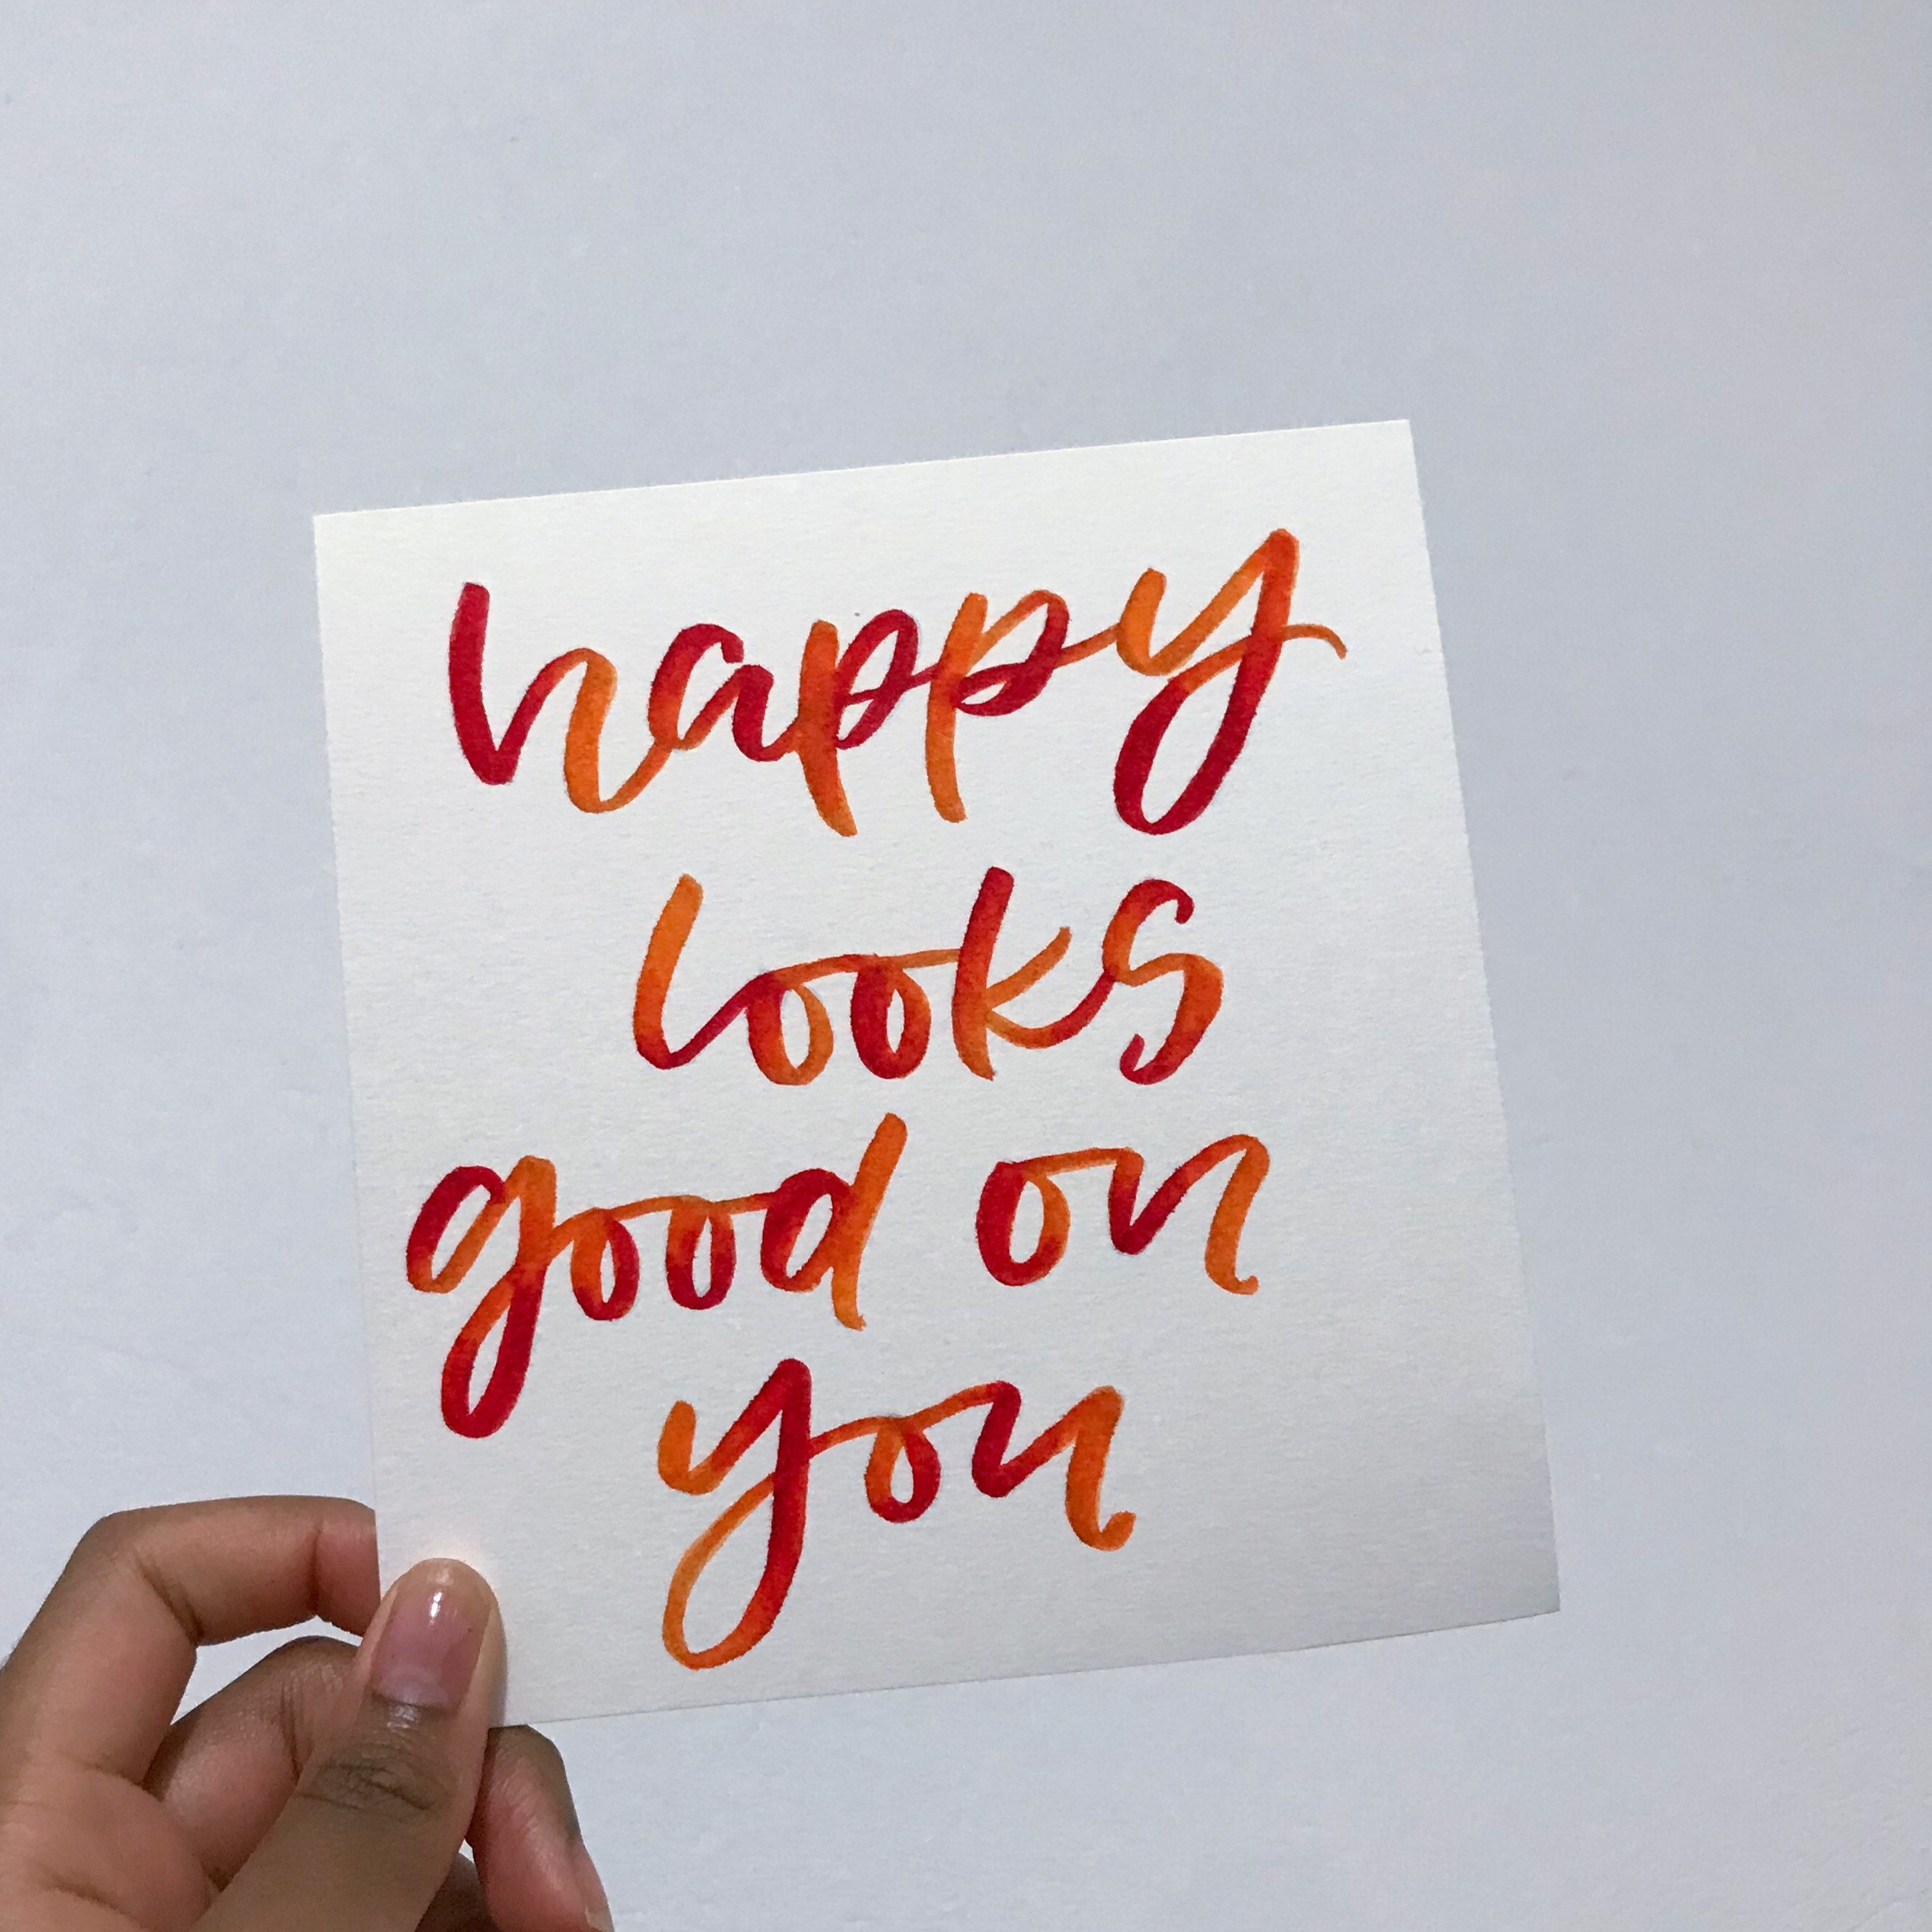 happy
looks
good on
you